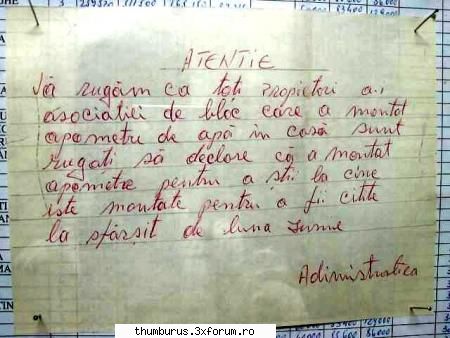 ATENTIE
Vă rugăm ca toti propietori a.
asociatiei de bloc care a montat
apometru de apă în casă sunt
rugați să declare că a montat
apometre pentru a stii la cine
iste montate pentru a fii citite
la sfârșit de luna iunie
Adimistratica
thumburus.3xforum.ro